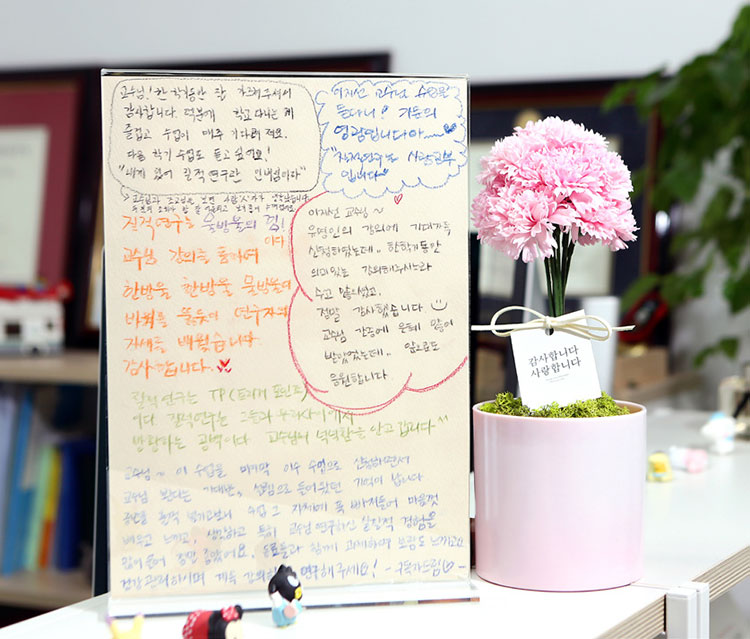 교수님! 한 학기동안 잘 가르쳐주셔서
감사합니다. 덕분에 학교 다니는 게
즐겁고 수업이 매주 기다려져요.
다음 학기 수업도 듣고 싶어요!
"내게 있어 질적연구란 인내심이다"
이지선 교수님 수업을
듣다니! 가문의
영광입니다아~
"질적연구는 사랑고부
입니다"
질적연구는 물방울의 힘!
이다
교수님 강의를 통하여
한방울 한방울 물방울이
바위를 뚫듯이 연구자의
자세를 배웠습니다
감사합니다.
이지선 교수님~
유명인의 강의에 기대가득
신청하였는데.. 한학기동안
의미있는 강의해주시느라
수고 많으셨고,
정말 감사했습니다
교수님 강의에 은혜 많이
받았었는데.. 앞으로도
응원합니다
질적연구는 TP(트리거 포인트)
이다 질적연구는 그들과 우리사이에서
방황하는 광역이다 교수님의 넉넉함을 안고 갑니다^^
교수님~ 이 수업을 마지막 이수 수업으로 신청하면서
교수님 뵌다는 기대반, 설렘으로 들어왔던 기억이 납니다
배우고 느끼고, 생각하고 특히 교수님 연구하신 실질적 경험을
많이 들어 정말 좋았어요. 동료들과 함께 과제하며 보람도 느끼고요
건강 관리하시며 계속 강의하고 연구해주세요!
감사합니다
사랑합니다